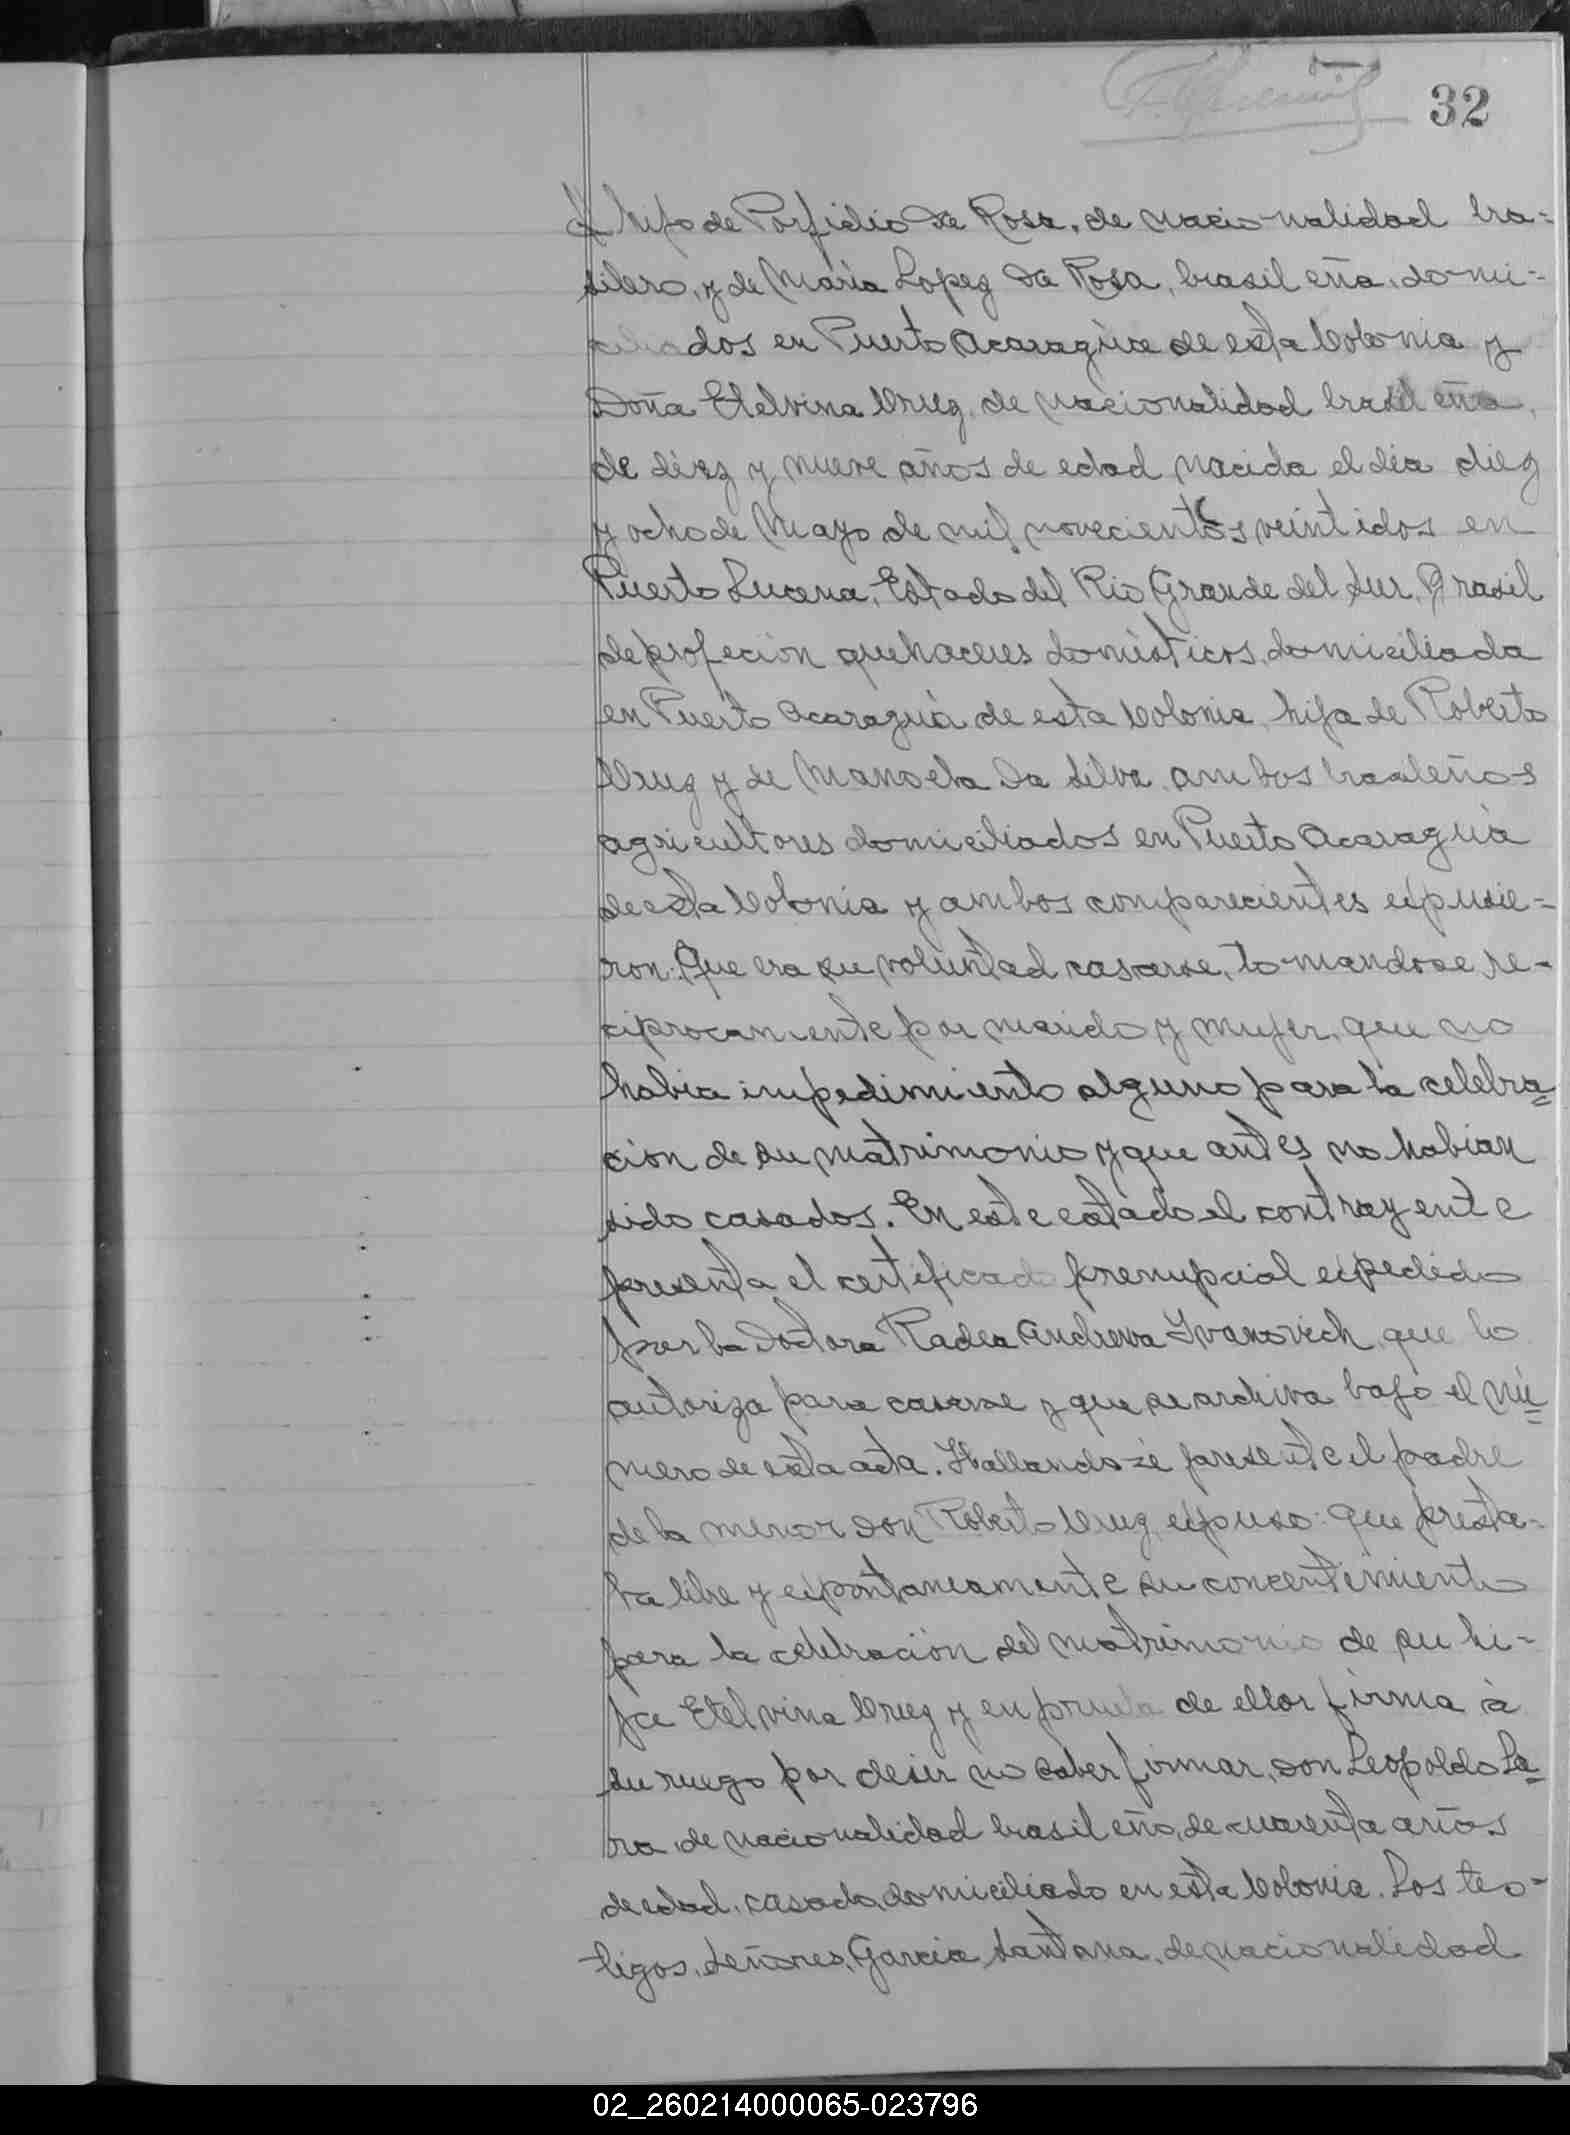 32
hijo de Porfidio Da Rosa, de nacionalidad bra=
silero, y de Maria Lopez Da Rosa, brasileña, domi=
ciliados en Puerto Acaragúa de esta Colonia y
Doña Etelvina Cruz, de nacionalidad brasileña,
de diez y nueve años de edad nacida el dia diez
y ocho de Mayo de mil novecientos veintidos en
Puerto Lucena, Estado del Rio Grande del Sur, Brasil
de profeción quehaceres domésticos, domiciliada
en Puerto Acaraguá de esta Colonia, hija de Roberto
Cruz y de Manoela Da Silva, ambos brasileños
agricultores domiciliados en Puerto Acaraguá
de esta Colonia y ambos comparecientes expusie=
ron: Que era su voluntad casarse, tomandose re=
ciprocamente por marido y mujer, que no
habia impedimiento alguno para la celebra=
ción de su matrimonio y que antes no habian
sido casados. En este estado el contrayente
presenta el certificado prenupcial expedido
por la Doctora Radea Andrewa Ivanovich, que lo
autoriza para casarse y que se archiva bajo el nú=
mero de esta acta. Hallandose presente el padre
de la menor Don Roberto Cruz expuso: que presta=
ba libre y expontaneamente su concentimiento
para la celebración del matrimonio de su hi=
ja Etelvina Cruz y en prueba de ellos firma à
su ruego por desir no saber firmar, Don Leopoldo La=
ra, de nacionalidad brasileño, de cuarenta años
de edad, casado, domiciliado en esta Colonia. Los tes=
tigos, Señores, Garcia Santana, de nacionalidad
02_260214000065-023796